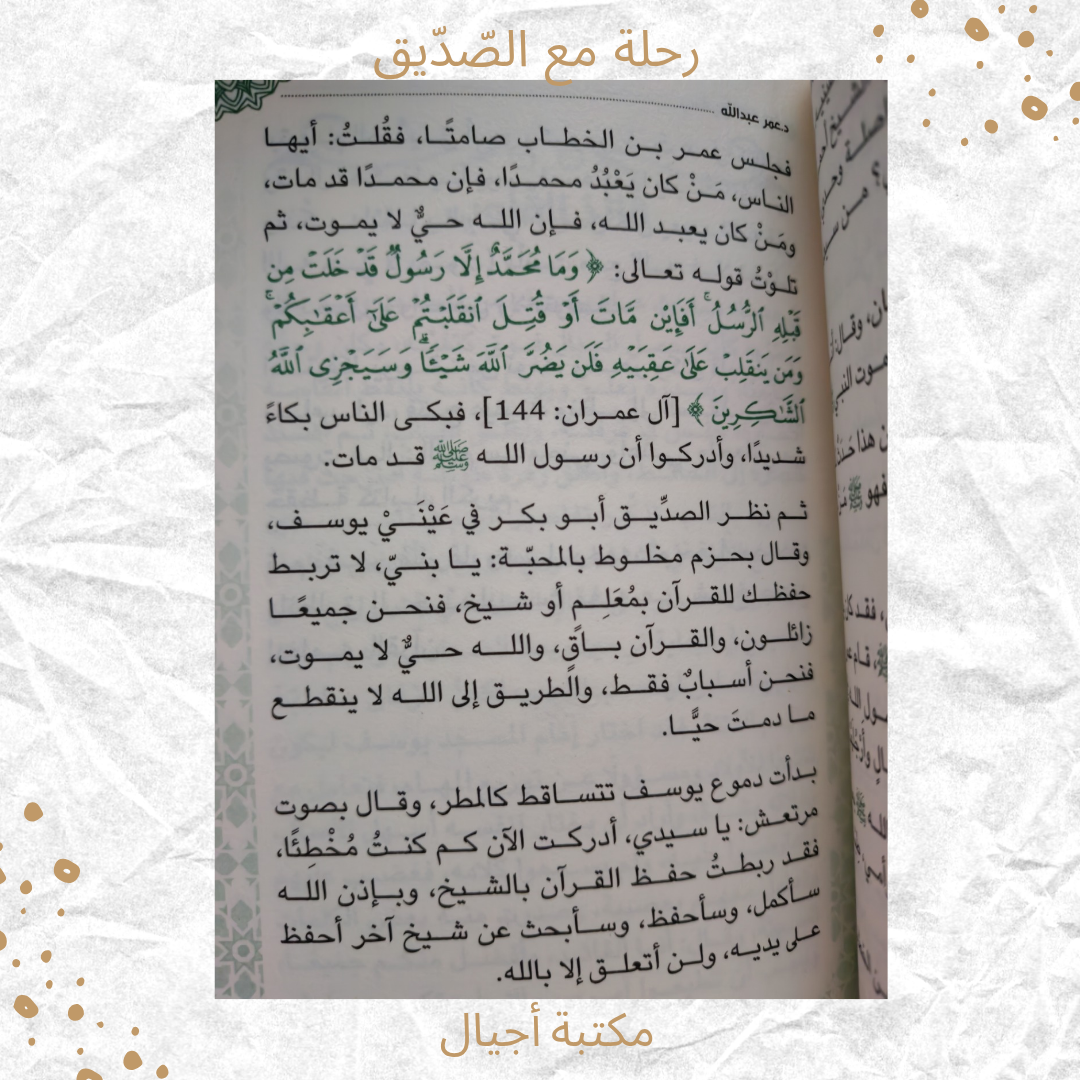 رحلة مع الصّدّيق
د.عمر عبدالله
فجلس عمر بن الخطاب صامتًا، فقُلتُ: أيها
الناس، مَنْ كان يَعْبُدُ محمدًا، فإن محمدًا قد مات،
ومَنْ كان يعبد الله، فإن الله حيٌّ لا يموت، ثم
تلوْتُ قوله تعالى: ﴿ وَمَا مُحَمَّدٌ إِلَّا رَسُولٌ قَدْ خَلَتْ مِن
قَبْلِهِ ٱلرُّسُلُ ۚ أَفَإِيْن مَّاتَ أَوْ قُتِلَ ٱنقَلَبْتُمْ عَلَىٰٓ أَعْقَـٰبِكُمْ ۚ
وَمَن يَنقَلِبْ عَلَىٰ عَقِبَيْهِ فَلَن يَضُرَّ ٱللَّهَ شَيْـًٔا ۗ وَسَيَجْزِى ٱللَّهُ
ٱلشَّـٰكِرِينَ ﴾ [آل عمران: 144]، فبكى الناس بكاءً
شديدًا، وأدركوا أن رسول الله ﷺ قد مات.
ثم نظر الصدِّيق أبو بكر في عَيْنَيْ يوسف،
وقال بحزم مخلوط بالمحبّة: يا بنيّ، لا تربط
حفظك للقرآن بمُعَلِم أو شيخ، فنحن جميعًا
زائلون، والقرآن باقٍ، والله حيٌّ لا يموت،
فنحن أسبابٌ فقط، والطريق إلى الله لا ينقطع
ما دمتَ حيًّا.
بدأت دموع يوسف تتساقط كالمطر، وقال بصوت
مرتعش: يا سيدي، أدركت الآن كم كنتُ مُخْطِئًا،
فقد ربطتُ حفظ القرآن بالشيخ، وبإذن الله
سأكمل، وسأحفظ، وسأبحث عن شيخ آخر أحفظ
على يديه، ولن أتعلق إلا بالله.
مكتبة أجيال